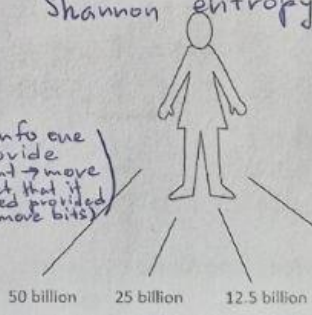 Shannon entropy
info one
provide
nt → move
t that if
ed provided
move bits)
50 billion 25 billion 12.5 billion